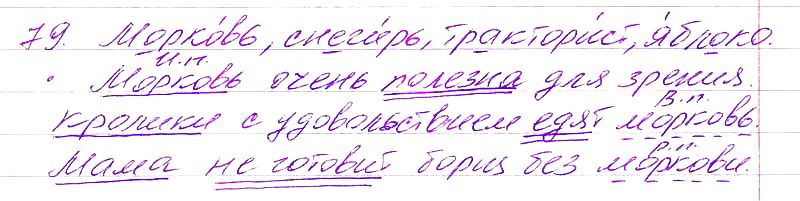 79. Морко́вь, снеги́рь, тракторист, я́блоко.
И.п.
Морковь очень полезна для зрения.
В.п.
Кролики с удовольствием едят морковь.
Р.п.
Мама не готовит борщ без моркови.